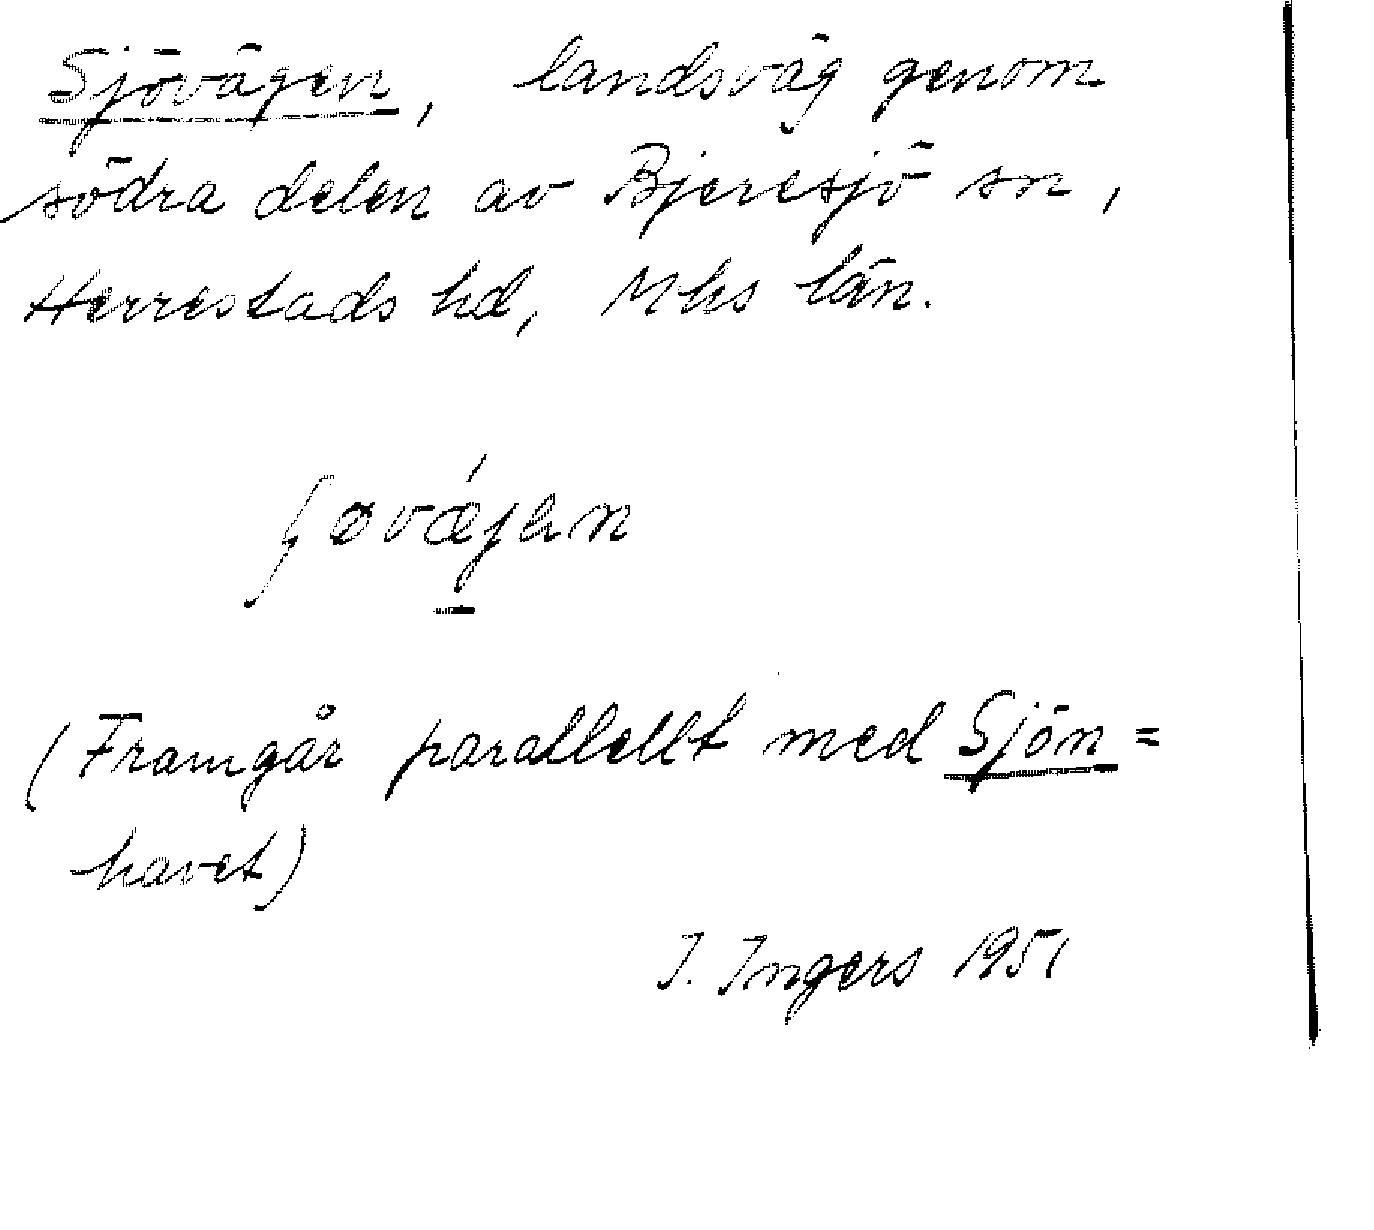 Sjövägen, landsväg genom
södra delen av Bjeresjö sn,
Herrestads hd, Mhs län.
ʃøvǽjen
(Framgår parallellt med Sjön =
havet)
I. Ingers 1951